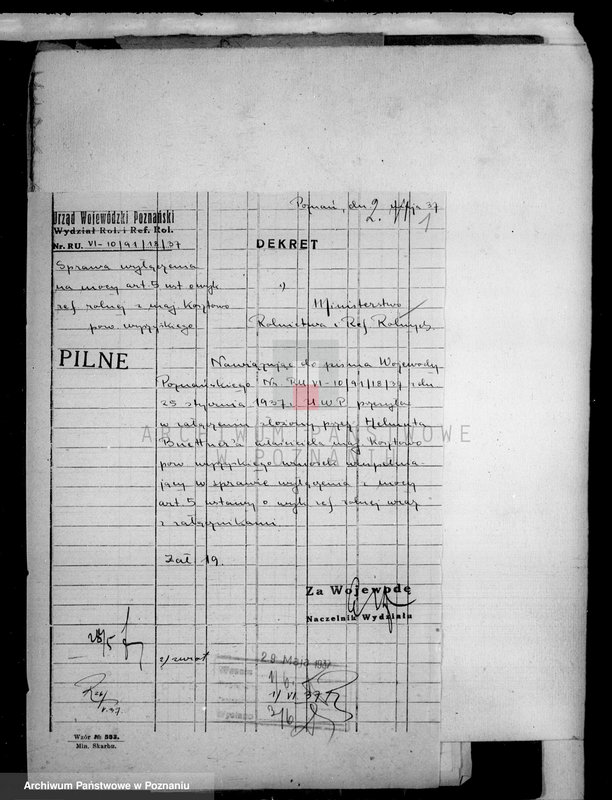 Poznań, dn. 2 37
1
Urząd Wojewódzki Poznański
Wydział Rol. i Ref. Rol.
Nr. RU. VI-10/91/18/37
DEKRET
Sprawa wyłączenia
na mocy art. 5 ust. o wyk.
ref. rolnej z maj. Kosztowo
pow. wyrzyskiego
1)
Ministerstwo
Rolnictwa i Ref. Rolnych
PILNE
Nawiązując do pisma Wojewody
Poznańskiego Nr. RU VI-10/91/18/37 z dn.
25 stycznia 1937 r. U W P przesyła
w załączeniu złożony przez Helmuta
Buettner'a właściciela maj. Kosztowo
pow. wyrzyskiego wniosek uzupełnia-
jący w sprawie wyłączenia z mocy
art. 5 ustawy o wyk. ref. rolnej wraz
z załącznikami.
ARCHIWUM PAŃSTWOWE
W POZNANIU
Zał. 19.
Za Wojewodę
Naczelnik Wydziału
28/5
2/ zwrot
28 Maja 1937
1/6
1/VI 37
2/6
Wzór № 533.
Min. Skarbu.
Archiwum Państwowe w Poznaniu